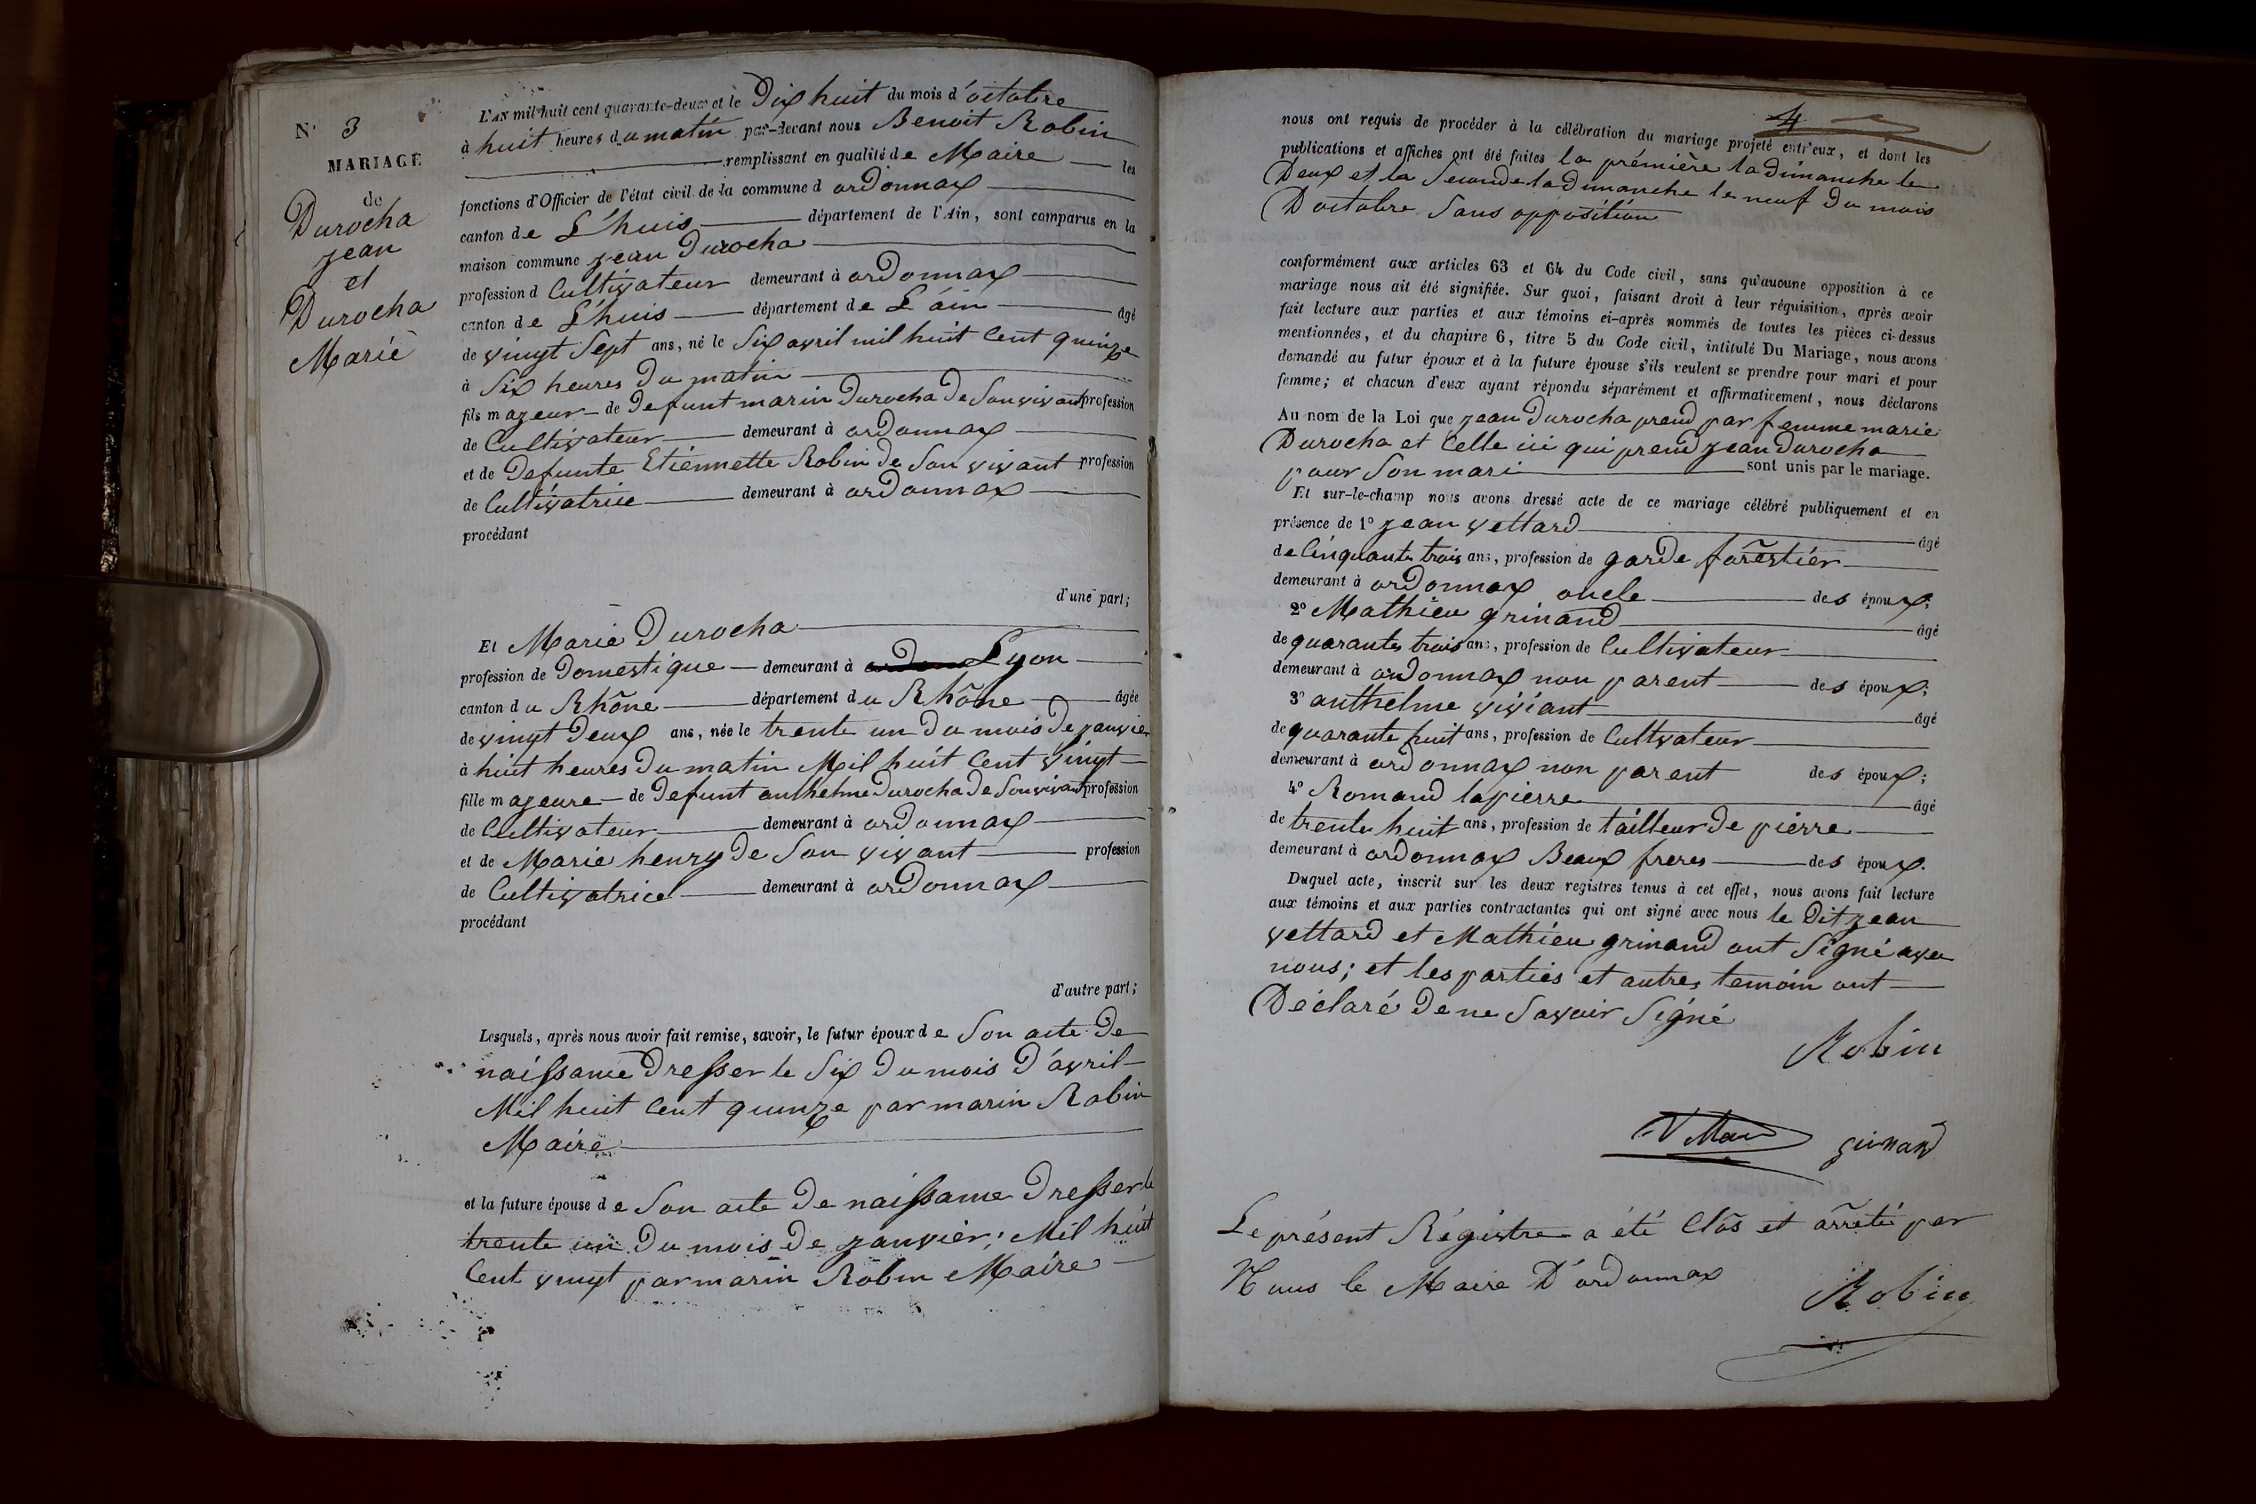 N° 3
MARIAGE
de
Durocha
jean
et
Durocha
Marie
L'AN mil huit cent quarante-deux et le Dix huit du mois d'octobre
à huit heures du matin par-devant nous Benoit Robin
remplissant en qualité de Maire les
fonctions d'Officier de l'état civil de la commune d ordonnax
canton de L'huis département de l'Ain, sont comparus en la
maison commune jean Durocha
profession d Cultivateur demeurant à ordonnax
canton de L'huis département de L'áin âgé
de vingt Sept ans, né le Six avril mil huit Cent quinze
à Six heures Du matin
fils majeur de Defunt marin Durocha De Son vivant profession
de Cultivateur demeurant à ordonnax
et de Defunte Etiennette Robin De Son vivant profession
de Cultivatrice demeurant à ordonnax
procédant
d'une part;
Et Marie Durocha
profession de Domestique demeurant à Lyon
canton du Rhône département du Rhône âgée
de vingt Deux ans, née le trente un Du mois De janvier
à huit heures Du matin Mil huit Cent vingt
fille majeure de Defunt anthelme Durocha De Son vivant profession
de Cultivateur demeurant à ordonnax
et de Marie henry De Son vivant profession
de Cultivatrice demeurant à ordonnax
procédant
d'autre part;
Lesquels, après nous avoir fait remise, savoir, le futur époux de Son acte De
naissance Dresser le Six Du mois D'avril
Mil huit Cent quinze par marin Robin
Maire
et la future épouse de Son acte De naissance Dresser le
trente un Du mois De janvier; Mil huit
Cent vingt par marin Robin Maire
4
nous ont requis de procéder à la célébration du mariage projeté entr'eux, et dont les
publications et affiches ont été faites la prémière la dimanche le
Deux et la Seconde la dimanche le neuf Du mois
D octobre Sans opposition
conformément aux articles 63 et 64 du Code civil, sans qu'aucune opposition à ce
mariage nous ait été signifiée. Sur quoi, faisant droit à leur réquisition, après avoir
fait lecture aux parties et aux témoins ci-après nommés de toutes les pièces ci-dessus
mentionnées, et du chapitre 6, titre 5 du Code civil, intitulé Du Mariage, nous avons
demandé au futur époux et à la future épouse s'ils veulent se prendre pour mari et pour
femme; et chacun d'eux ayant répondu séparément et affirmativement, nous déclarons
Au nom de la Loi que jean Durocha prend par femme marie
Durocha et Celle ici qui prend jean Durocha
pour Son mari sont unis par le mariage.
Et sur-le-champ nous avons dressé acte de ce mariage célébré publiquement et en
présence de 1° jean vettard âgé
de Cinquante trois ans, profession de garde forestiér
demeurant à ordonnax oncle des époux;
2° Mathieu grinand âgé
de quarante trois ans, profession de Cultivateur
demeurant à ordonnax non parent des époux;
3° anthelme viviant âgé
de quarante huit ans, profession de Cultivateur
demeurant à ordonnax non parent des époux;
4° Romand lapierre âgé
de trente huit ans, profession de tailleur De pierre
demeurant à ordonnax Beaux freres des époux.
Duquel acte, inscrit sur les deux registres tenus à cet effet, nous avons fait lecture
aux témoins et aux parties contractantes qui ont signé avec nous le Dit jean
vettard et Mathieu grinand ont Signé avec
nous; et les parties et autres temoin ont
Déclaré De ne Savoir Signé
Robin
grinand
Le présent Régistre a été Clos et arrêté par
Nous le Maire D'ordonnax
Robin